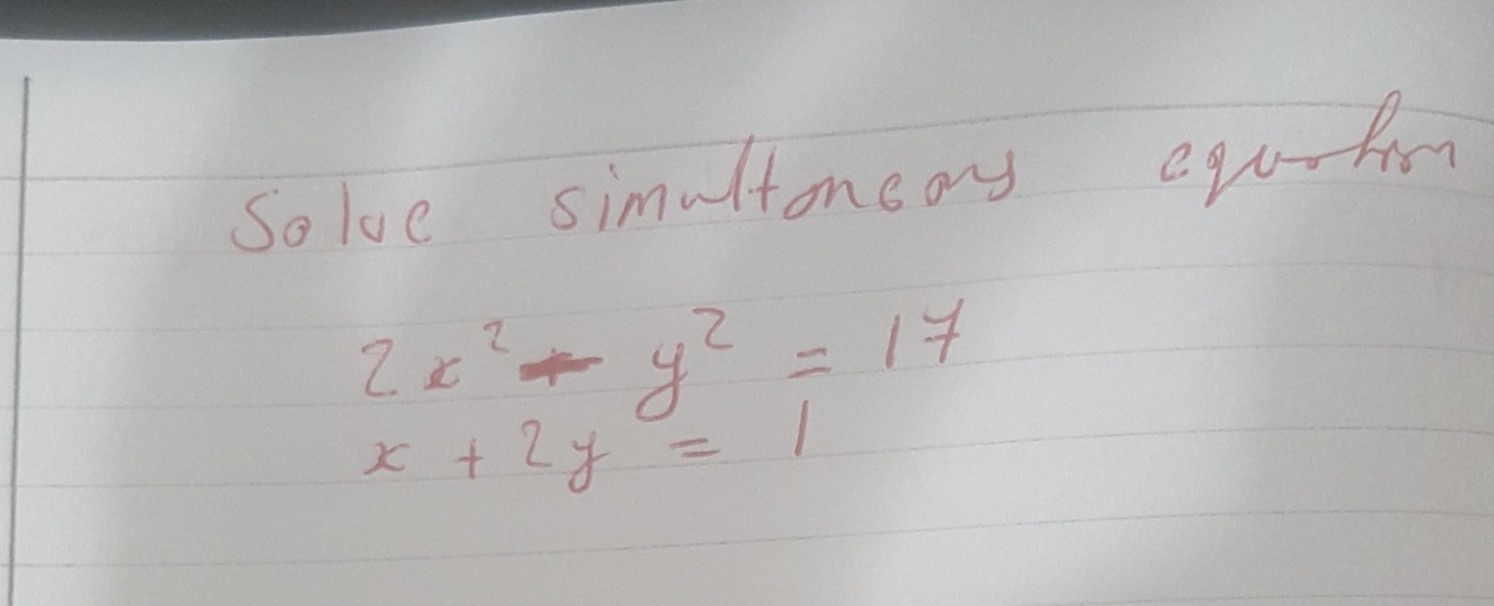 Solve simultaneous equation
2x² - y² = 17
x + 2y = 1